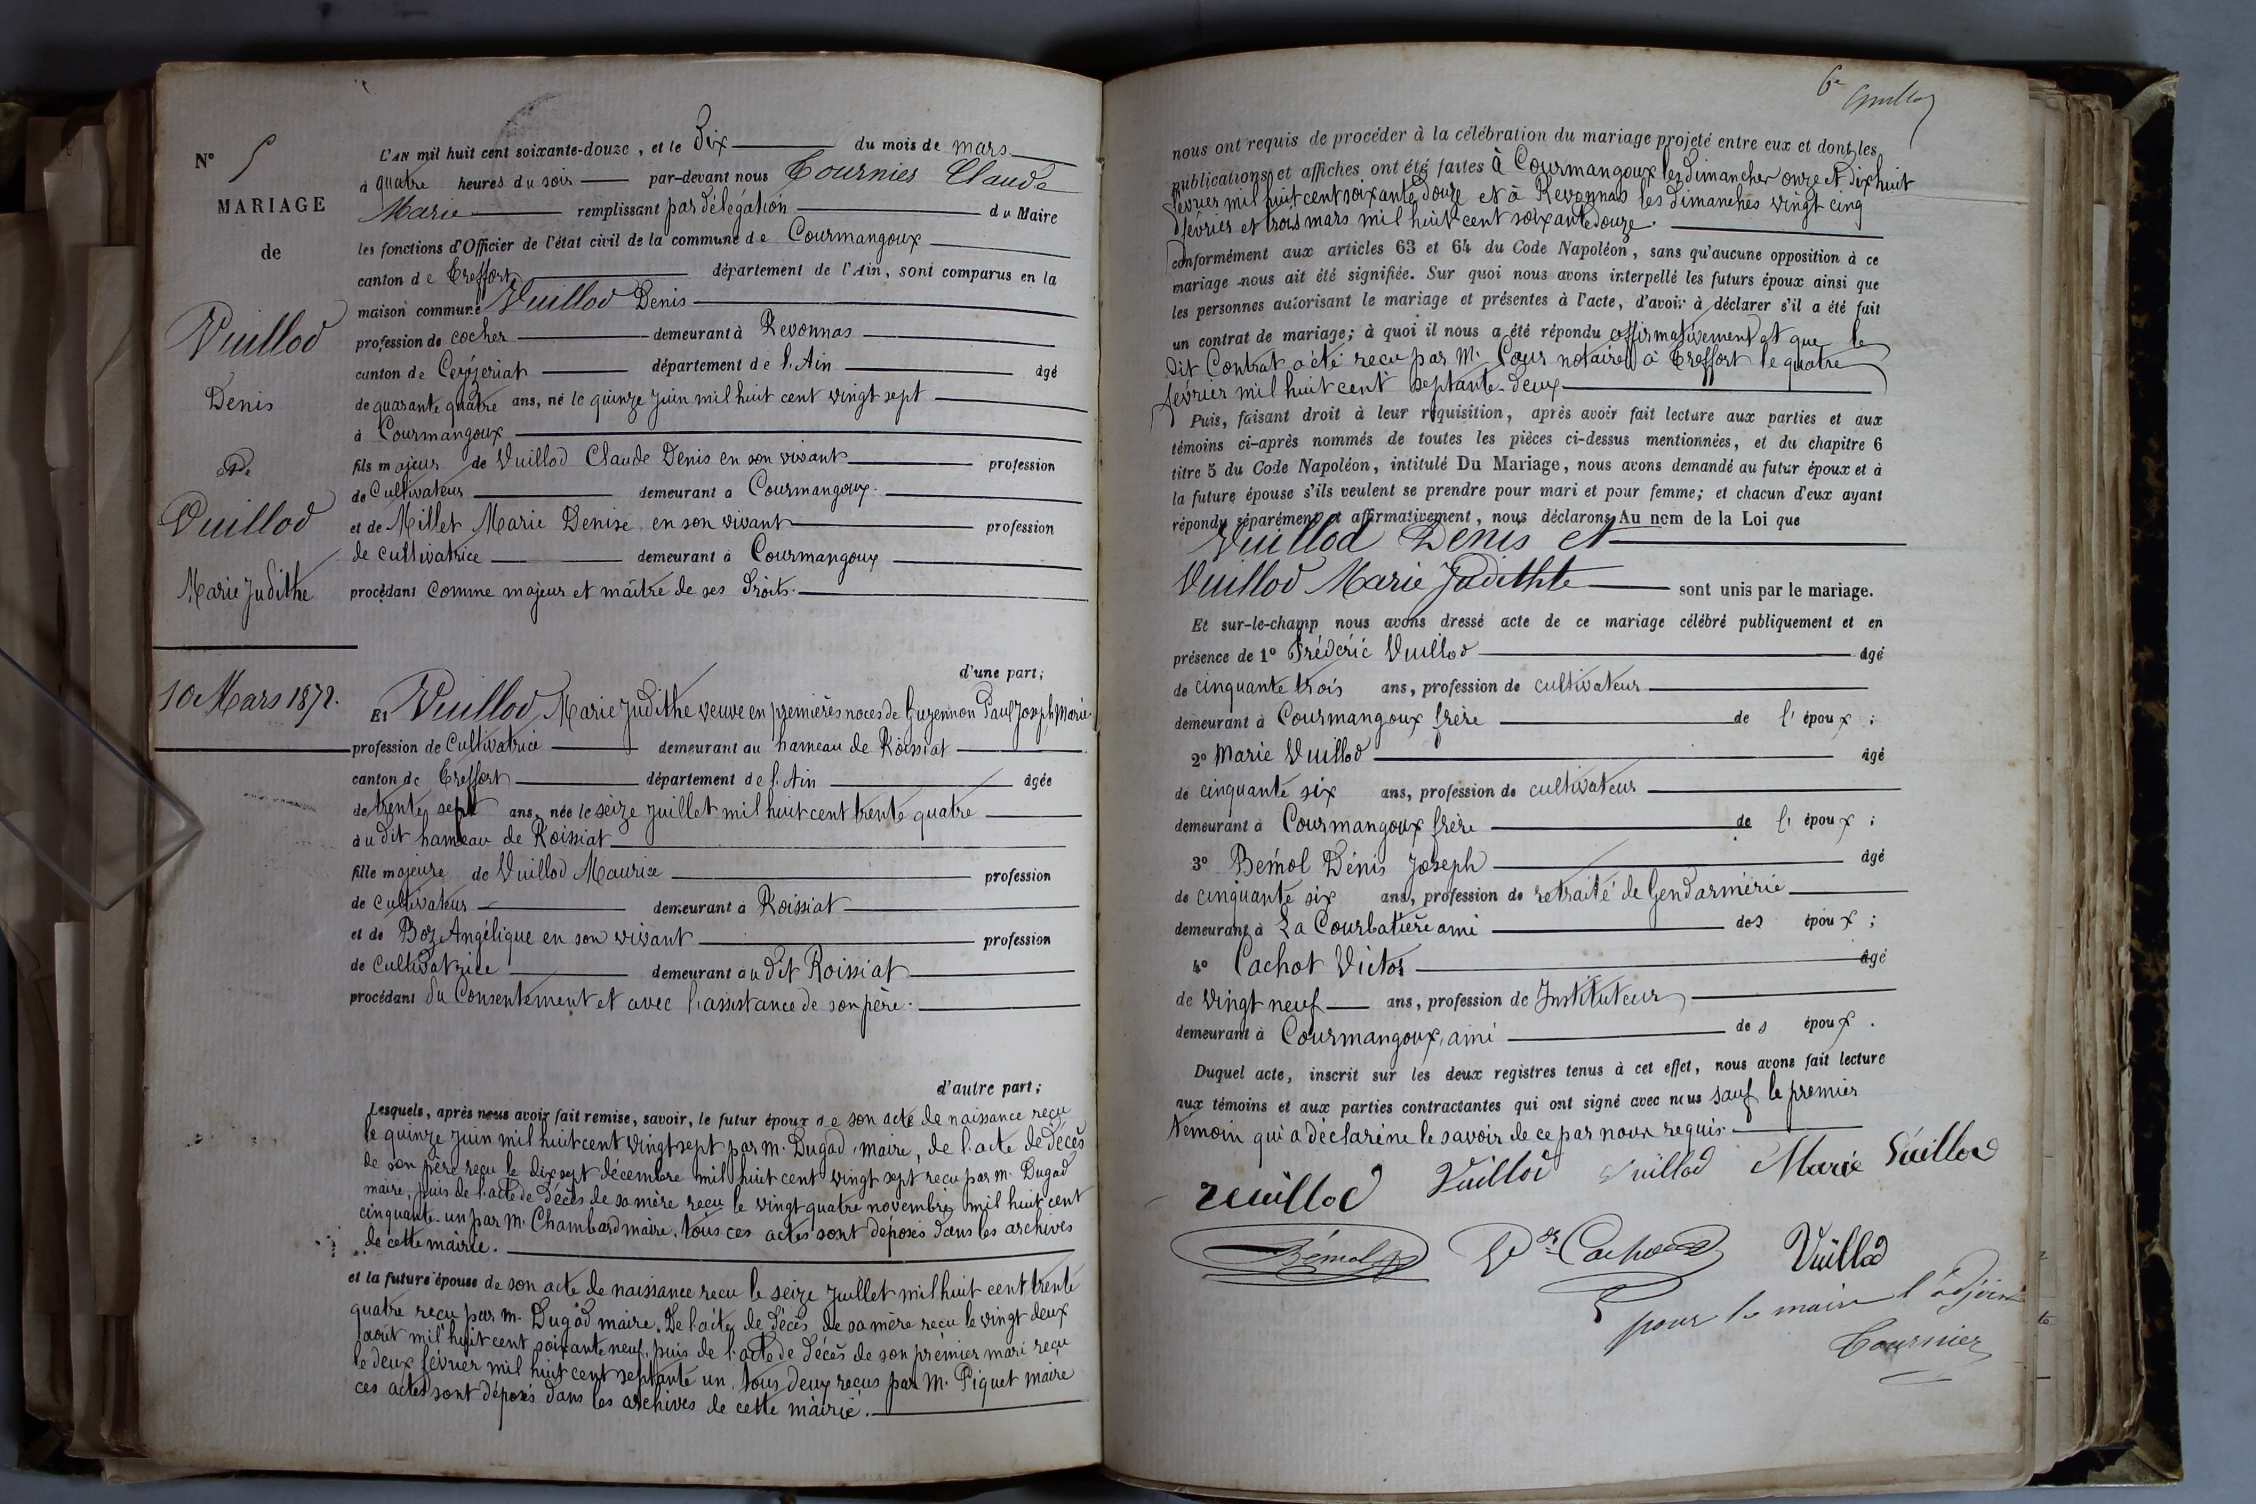 N° 5
MARIAGE
de
Vuillod
Denis
et de
Vuillod
Marie Judithe
10 Mars 1872.
L'AN mil huit cent soixante-douze, et le Dix du mois de mars
à quatre heures du soir par-devant nous Tournier Claude
Marie remplissant par délégation du Maire
les fonctions d'Officier de l'état civil de la commune de Courmangoux
canton de Treffort département de l'Ain, sont comparus en la
maison commune Vuillod Denis
profession de cocher demeurant à Revonnas
canton de Ceyzériat département de l'Ain âgé
de quarante quatre ans, né le quinze juin mil huit cent vingt sept
à Courmangoux
fils majeur de Vuillod Claude Denis en son vivant profession
de Cultivateur demeurant à Courmangoux.
et de Millet Marie Denise en son vivant profession
de cultivatrice demeurant à Courmangoux
procédant comme majeur et maître de ses droits.
d'une part;
Et Vuillod Marie Judithe veuve en premières noces de Guzennon Paul Joseph Marie
profession de Cultivatrice demeurant au hameau de Roissiat
canton de Treffort département de l'Ain âgée
de trente sept ans, née le seize juillet mil huit cent trente quatre
au dit hameau de Roissiat
fille majeure de Vuillod Maurice profession
de cultivateur demeurant à Roissiat
et de Boz Angélique en son vivant profession
de Cultivatrice demeurant au dit Roissiat
procédant du Consentement et avec l'assistance de son père.
d'autre part;
Lesquels, après nous avoir fait remise, savoir, le futur époux de son acte de naissance reçu
le quinze juin mil huit cent vingt sept par M. Dugad, maire, de l'acte de décès
de son père reçu le dix sept décembre mil huit cent vingt sept reçu par M. Dugad
maire, puis de l'acte de décès de sa mère reçu le vingt quatre novembre mil huit cent
cinquante-un par M. Chambard maire. tous ces actes sont déposés dans les archives
de cette mairie.
et la future épouse de son acte de naissance reçu le seize juillet mil huit cent trente
quatre reçu par M. Dugad maire. De l'acte de décès de sa mère reçu le vingt deux
août mil huit cent soixante neuf, puis de l'acte de décès de son premier mari reçu
le deux février mil huit cent septante un. tous deux reçus par M. Piquet maire
ces actes sont déposés dans les archives de cette mairie.
6e
nous ont requis de procéder à la célébration du mariage projeté entre eux et dont les
publications et affiches ont été faites à Courmangoux les dimanches onze et dix huit
février mil huit cent soixante douze et à Revonnas les dimanches vingt cinq
février et trois mars mil huit cent soixante douze.
conformément aux articles 63 et 64 du Code Napoléon, sans qu'aucune opposition à ce
mariage nous ait été signifiée. Sur quoi nous avons interpellé les futurs époux ainsi que
les personnes autorisant le mariage et présentes à l'acte, d'avoir à déclarer s'il a été fait
un contrat de mariage; à quoi il nous a été répondu affirmativement et que le
dit Contrat a été reçu par M. Cour notaire à Treffort le quatre
février mil huit cent septante-deux
Puis, faisant droit à leur réquisition, après avoir fait lecture aux parties et aux
témoins ci-après nommés de toutes les pièces ci-dessus mentionnées, et du chapitre 6
titre 5 du Code Napoléon, intitulé Du Mariage, nous avons demandé au futur époux et à
la future épouse s'ils veulent se prendre pour mari et pour femme; et chacun d'eux ayant
répondu séparément et affirmativement, nous déclarons Au nom de la Loi que
Vuillod Denis et
Vuillod Marie Judithte sont unis par le mariage.
Et sur-le-champ nous avons dressé acte de ce mariage célébré publiquement et en
présence de 1° Frédéric Vuillod âgé
de cinquante trois ans, profession de cultivateur
demeurant à Courmangoux frère de l'époux;
2° Marie Vuillod âgé
de cinquante six ans, profession de cultivateur
demeurant à Courmangoux frère de l'époux;
3° Bémol Dénis Joseph âgé
de cinquante six ans, profession de retraité de Gendarmerie
demeurant à La Courbatière ami des époux;
4° Cachot Victor âgé
de vingt neuf ans, profession de Instituteur
demeurant à Courmangoux, ami des époux.
Duquel acte, inscrit sur les deux registres tenus à cet effet, nous avons fait lecture
aux témoins et aux parties contractantes qui ont signé avec nous sauf le premier
témoin qui a déclaré ne le savoir de ce par nous requis.
Vuillod Vuillod Vuillod Marie Vuillod
Bémol Vor Cachot Vuillod
pour le maire l'adjoint
Tournier